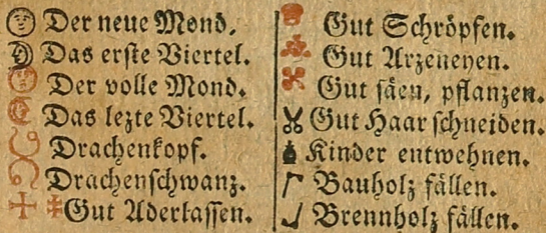 Der neue Mond.
Das erſte Viertel.
Der volle Mond.
Das lezte Viertel.
Drachenkopf.
Drachenſchwanz.
Gut Aderlaſſen.
Gut Schröpfen.
Gut Arzeneyen.
Gut ſäen, pflanzen.
Gut Haar ſchneiden.
Kinder entwehnen.
Bauholz fällen.
Brennholz fällen.